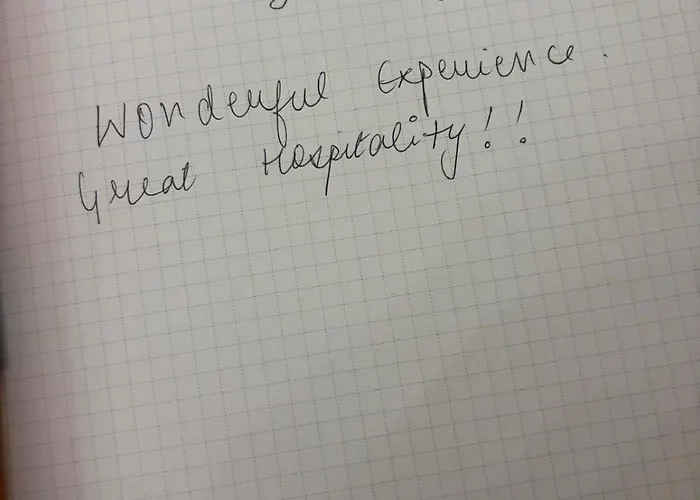 Wonderful Experience.
Great Hospitality!!